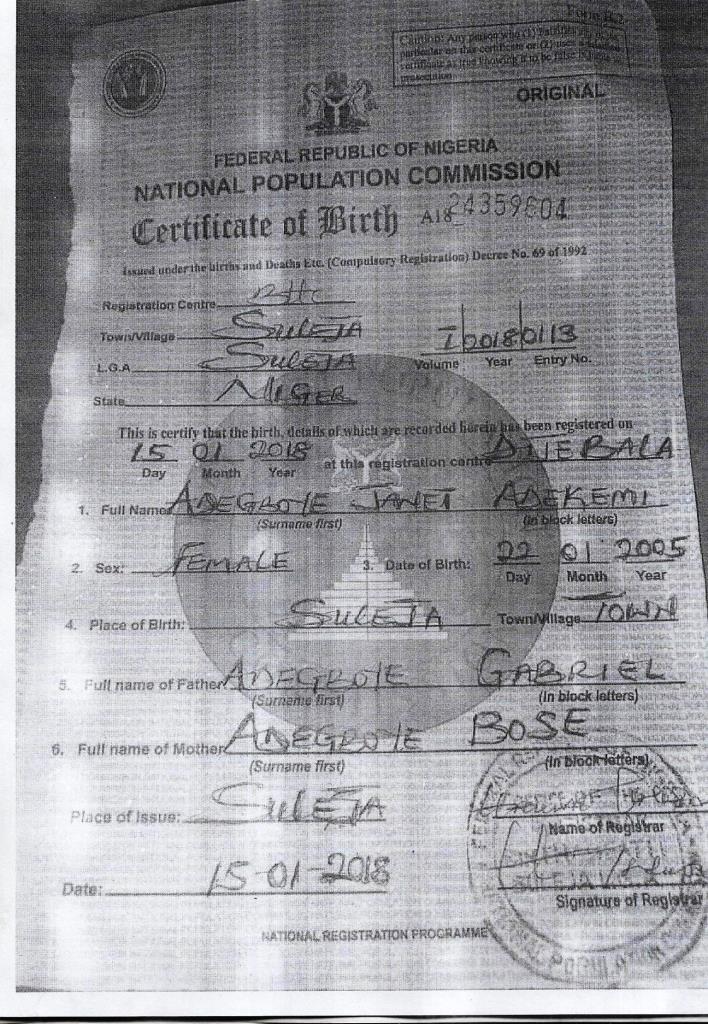 Form B.2
Caution: Any person who (1) Falsifies any
particular on this certificate or (2) uses a
certificate as true knowing it to be false is liable to
prosecution
ORIGINAL
FEDERAL REPUBLIC OF NIGERIA
NATIONAL POPULATION COMMISSION
Certificate of Birth A18 24359604
Issued under the births and Deaths Etc. (Compulsory Registration) Decree No. 69 of 1992
Registration Centre
Town/Village SULEJA
L.G.A SULEJA
I 2018 0113
Volume Year Entry No.
State NIGER
This is certify that the birth, details of which are recorded herein has been registered on
15 01 2018 at this registration centre
Day Month Year
1. Full Name ADEGBOYE JANET ADEKEMI
(Surname first) (in block letters)
2. Sex: FEMALE 3. Date of Birth: 22 01 2005
Day Month Year
4. Place of Birth: SULEJA Town/Village TOWN
5. Full name of Father ADEGBOYE GABRIEL
(Surname first) (in block letters)
6. Full name of Mother ADEGBOYE BOSE
(Surname first) (in block letters)
Place of Issue: SULEJA
Name of Registrar
Date: 15-01-2018
Signature of Registrar
NATIONAL REGISTRATION PROGRAMME